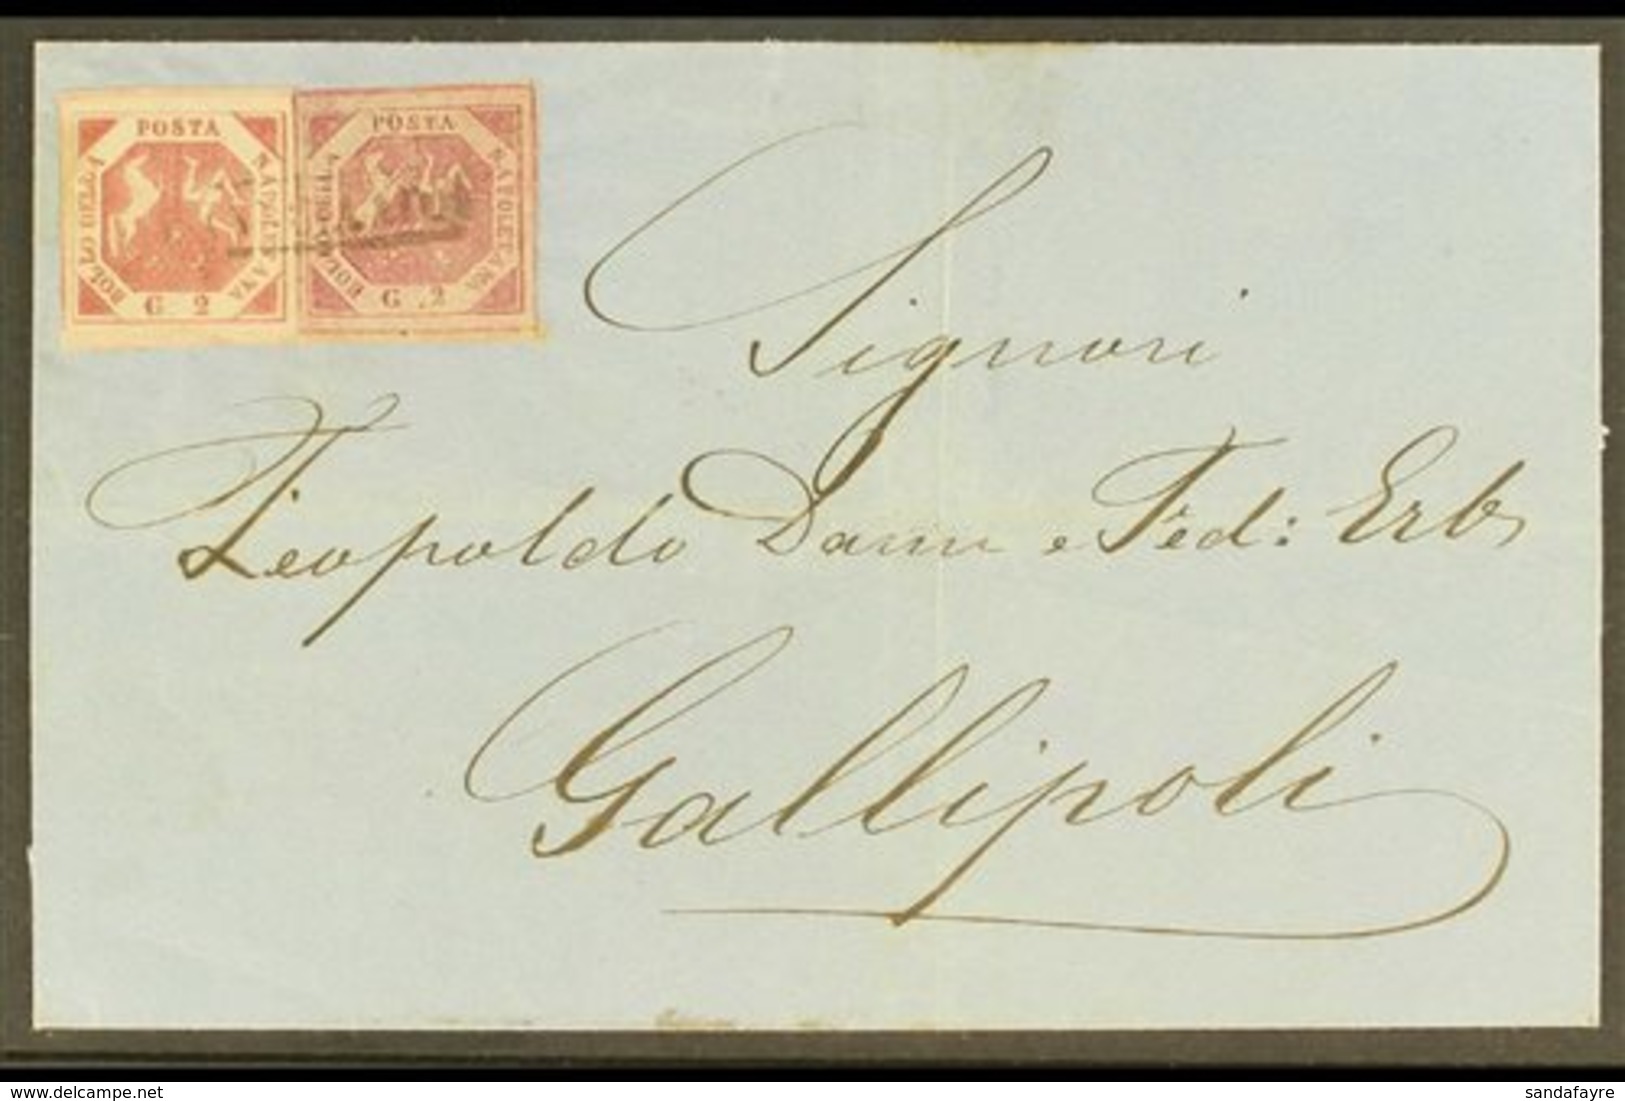 POSTA
BOLLO DELLA
NAPOLETANA
G 2
POSTA
BOLLO DELLA
NAPOLETANA
G 2
Signori
Leopoldo Dann e Fed: Erb
Gallipoli
sandafayre.com